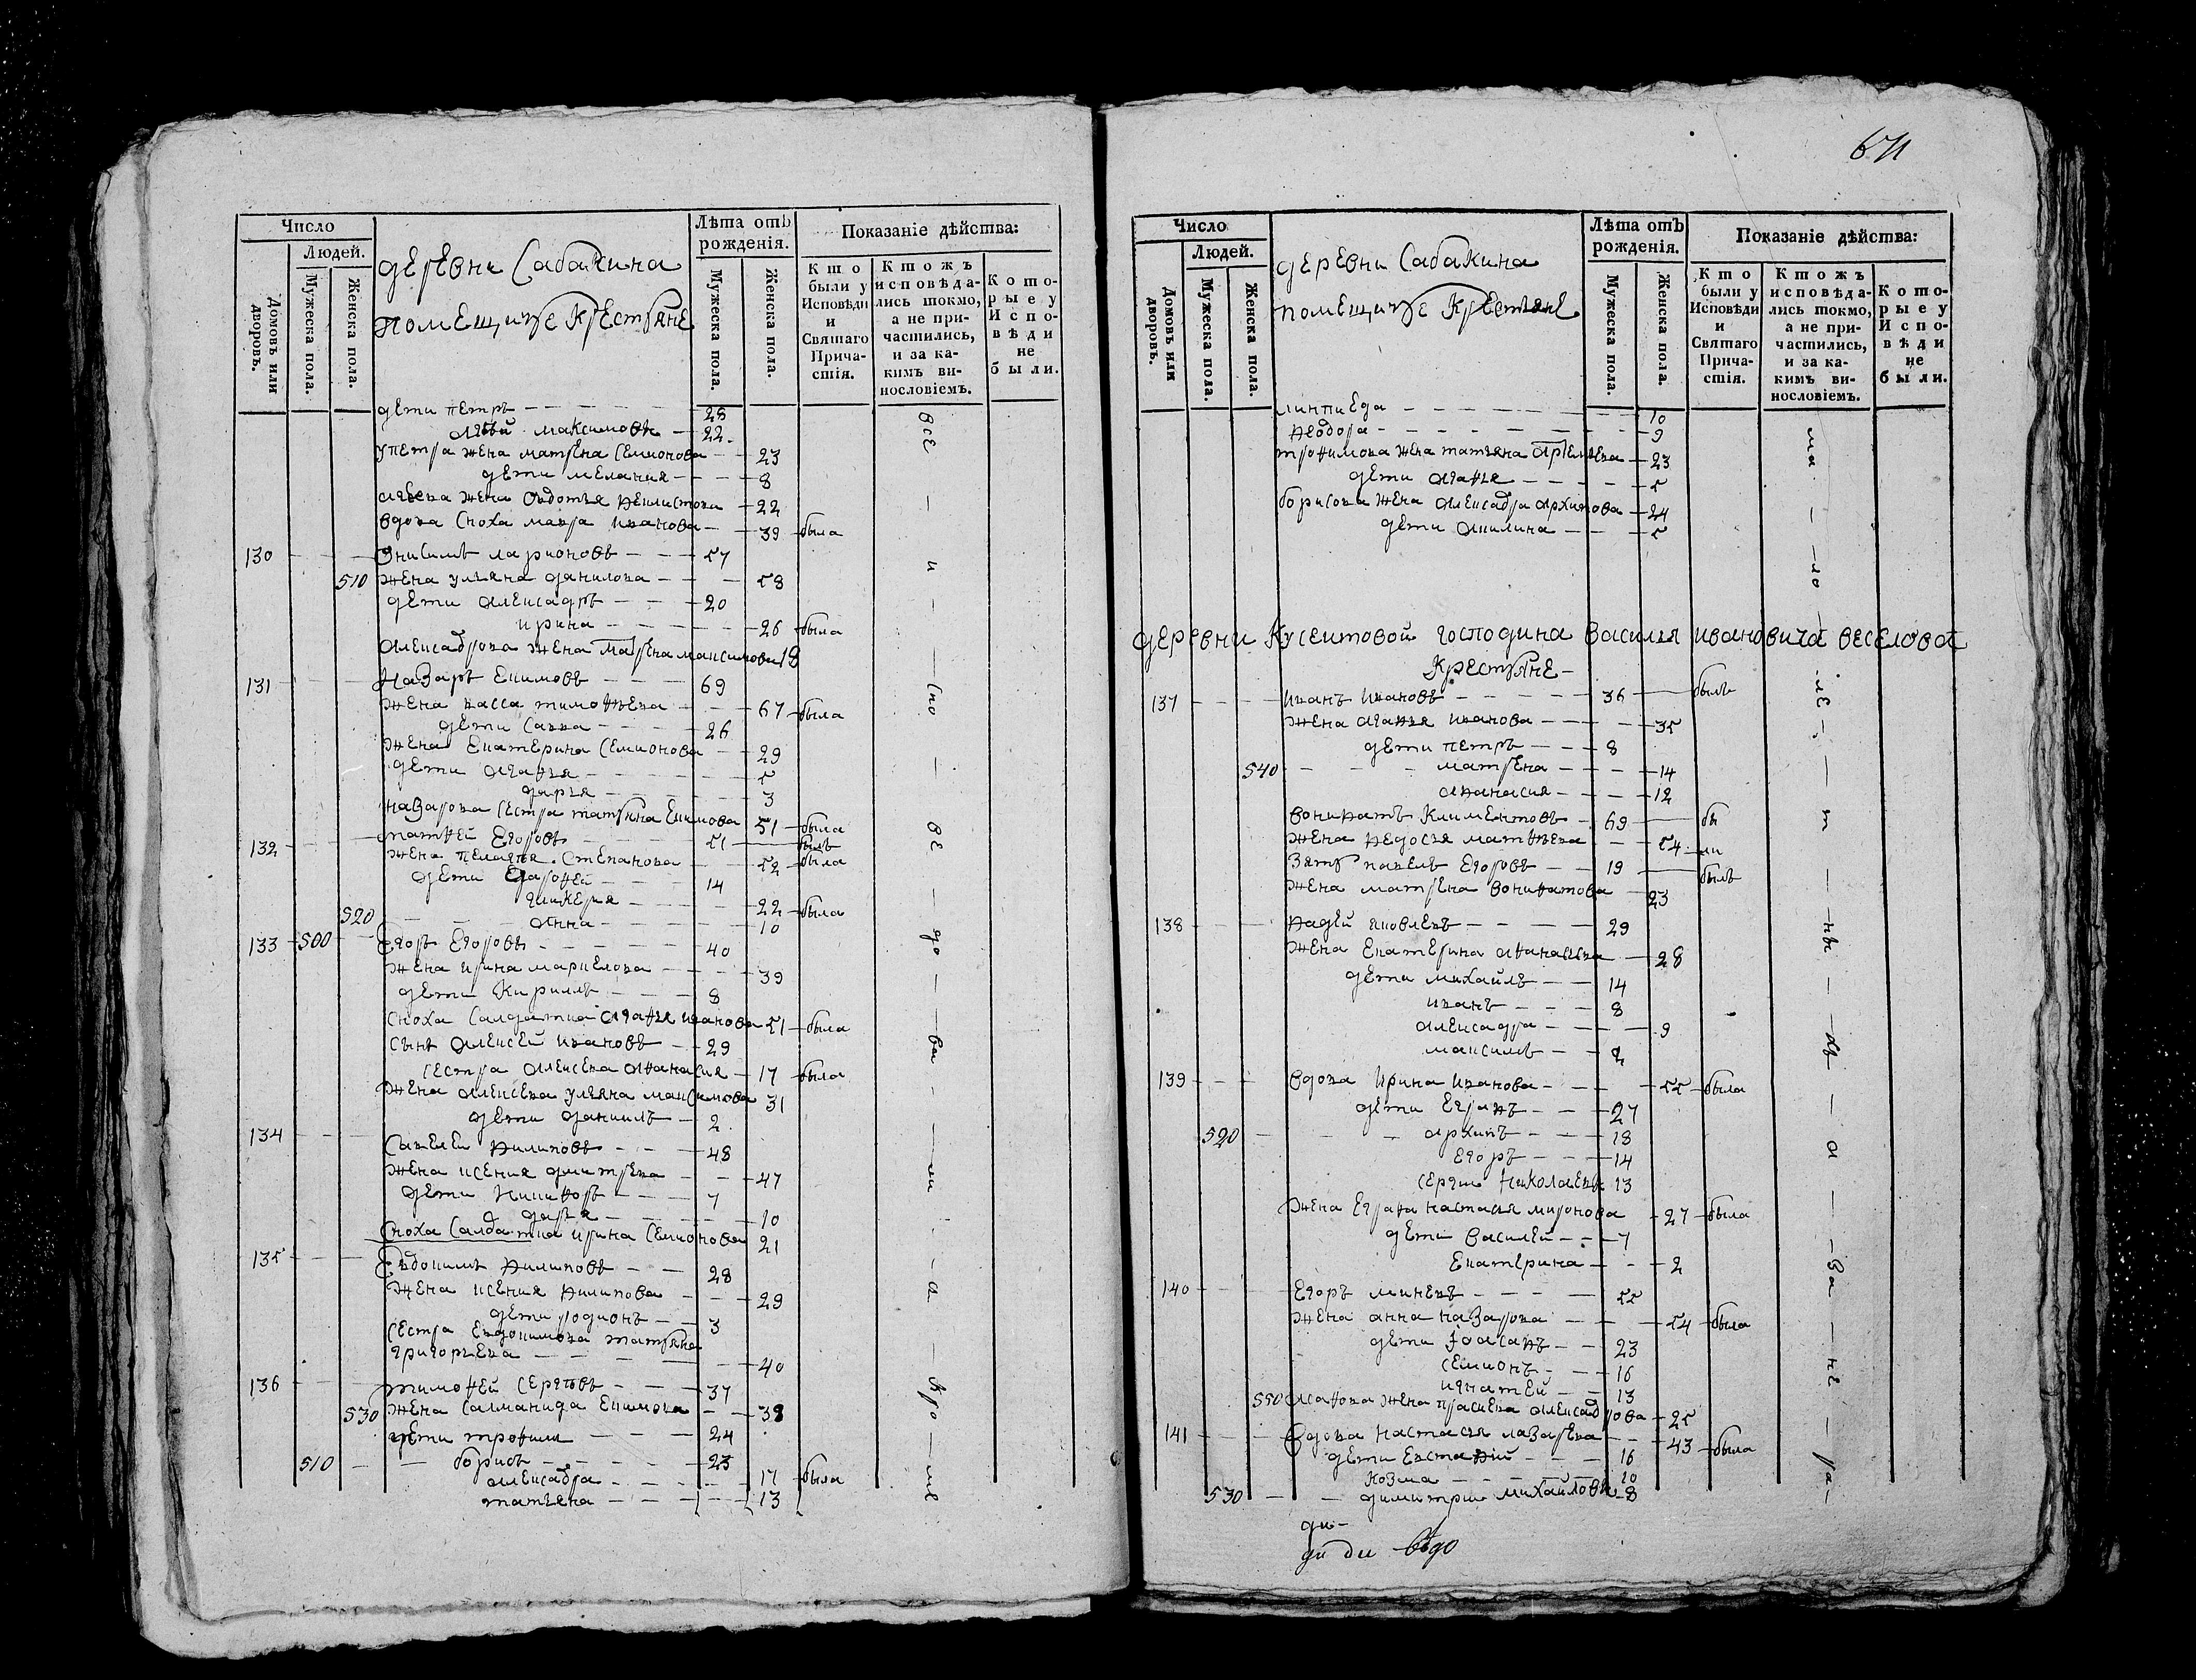 Число
Людей.
Домовъ или дворовъ.
Мужеска пола.
Женска пола.
деревни Сабакина
помещичье Крестьяне
Лѣта отъ рожденія.
Мужеска пола.
Женска пола.
Показаніе дѣйства:
Кто были у Исповѣди и Святаго Причастія.
Ктожъ исповѣдались токмо, а не причастились, и за какимъ винословіемъ.
Которые у Исповѣди не были.
дети петръ 28
максимовы 22
у петра жена матрена Семионова 23
дети мелания 8
жена овдотья 22
вдова сноха мавра иванова 39 была
130 Онисимъ ларионовъ 57
510 жена ульяна данилова 58
дети алексадръ 20
ирина 26 была
алексадрова жена матрена максимова 18
131 Назаръ екимовъ 69
жена васса тимофеева 67 была
дети савва 26
жена екатерина семионова 29
дети агафья 5
дарья 3
назарова сестра татьяна екимова 51 была
132 матфей егоровъ 51 былъ
жена пелагея степанова 52 была
дети 14
гликерия 22 была
520 анна 10
133 500 Егоръ егоровъ 40
жена ирина маркелова 39
дети Кирилъ 8
сноха салдатка агафья иванова 51 была
сынъ алексей ивановъ 29
сестра алексева афанасия 17 была
жена алексева ульяна максимова 31
дети даниилъ 2
134 Савелей филиповъ 48
жена ксения дмитрева 47
дети никифоръ 7
дарья 10
сноха салдатка ирина семионова 21
135 Евдокимъ филиповъ 28
жена ксения филипова 29
дети родионъ 3
сестра евдокимова татьяна
григорьева 40
136 тимофей сергѣевъ 37
530 жена саламанида екимова 38
дети трофимъ 24
510 борисъ 23
алексадра 17 была
татьяна 13
все
и
спо
ве
до
ва
ли
с
671
Число
Людей.
Домовъ или дворовъ.
Мужеска пола.
Женска пола.
деревни Сабакина
помещичье Крестьяне
Лѣта отъ рожденія.
Мужеска пола.
Женска пола.
Показаніе дѣйства:
Кто были у Исповѣди и Святаго Причастія.
Ктожъ исповѣдались токмо, а не причастились, и за какимъ винословіемъ.
Которые у Исповѣди не были.
10
феодора 9
трофимова жена татьяна 23
дети агафья 5
борисова жена алексадра архипова 24
дети акилина 5
деревни Кусеитовой господина василья ивановича веселова
Крестьяне
137 иванъ ивановъ 36 былъ
жена агафья иванова 35
дети петръ 8
540 матрена 14
афанасия 12
вонифатъ климентовъ 69 бы
жена федосья матфѣева 54 ли
зять павелъ егоровъ 19 былъ
жена матрена вонифатова 23
138 фадей яковлевъ 29
жена екатерина афанасева 28
дети михайлъ 14
иванъ 8
алексадра 9
максимъ 2
139 вдова ирина иванова 55 была
дети евграфъ 27
520 архипъ 18
егоръ 14
сергѣи николаевы 13
жена евграфа настасья миронова 27 была
дети василей 7
екатерина 2
140 егоръ минеевъ 55
жена анна назарова 54 была
дети іоасафъ 23
семионъ 16
игнатей 13
550 жена прасковя алексадрова 25
141 вдова настасья лазарева 43 была
дети евстафий 16
козма 10
530 димитри михайловы 8
ди ди вѣдо
ма
ло
лѣ
т
ны
хъ
а
за
не
ра-